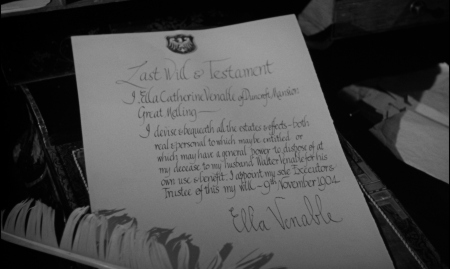 Last Will & Testament
I Ella Catherine Venable of Duncroft Mansion
Great Molling
I devise & bequeath all the estates & effects - both
real & personal to which may be entitled or
which may have a general power to dispose of at
my decease to my husband Walter Venable for his
own use & benefit. I appoint my sole Executors
Trustee of this my Will - 9th November 1904
Ella Venable